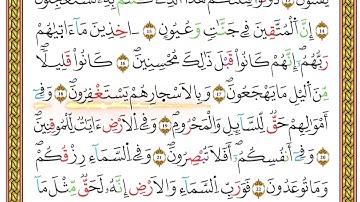 إِنَّ ٱلْمُتَّقِينَ فِى جَنَّٰتٍ وَعُيُونٍ ۝١٥ ءَاخِذِينَ مَآ ءَاتَىٰهُمْ
رَبُّهُمْ ۚ إِنَّهُمْ كَانُوا۟ قَبْلَ ذَٰلِكَ مُحْسِنِينَ ۝١٦ كَانُوا۟ قَلِيلًا
مِّنَ ٱلَّيْلِ مَا يَهْجَعُونَ ۝١٧ وَبِٱلْأَسْحَارِ هُمْ يَسْتَغْفِرُونَ ۝١٨ وَفِىٓ
أَمْوَٰلِهِمْ حَقٌّ لِّلسَّآئِلِ وَٱلْمَحْرُومِ ۝١٩ وَفِى ٱلْأَرْضِ ءَايَٰتٌ لِّلْمُوقِنِينَ
۝٢٠ وَفِىٓ أَنفُسِكُمْ ۚ أَفَلَا تُبْصِرُونَ ۝٢١ وَفِى ٱلسَّمَآءِ رِزْقُكُمْ
وَمَا تُوعَدُونَ ۝٢٢ فَوَرَبِّ ٱلسَّمَآءِ وَٱلْأَرْضِ إِنَّهُۥ لَحَقٌّ مِّثْلَ مَآ